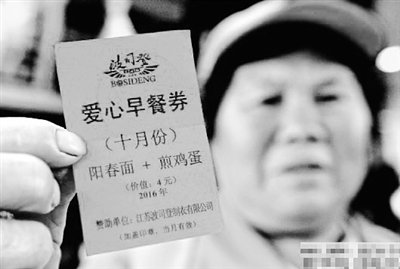 波司登
BOSIDENG
爱心早餐券
（十月份）
阳春面 + 煎鸡蛋
（价值：4元）
2016年
赞助单位：江苏波司登制衣有限公司
（加盖印章，当月有效）